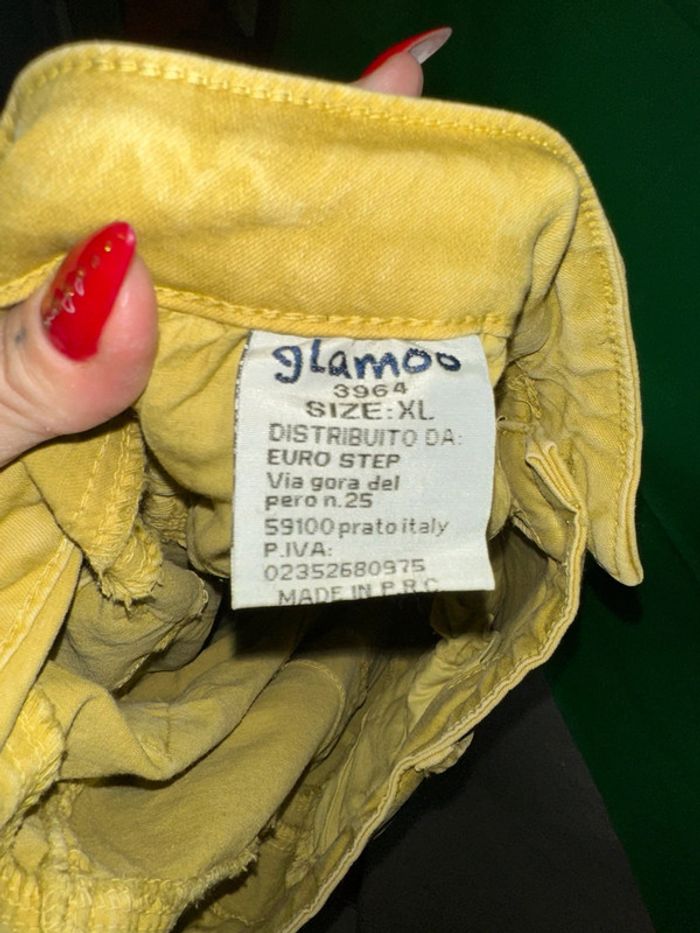 glamoo
3964
SIZE:XL
DISTRIBUITO DA:
EURO STEP
Via gora del
pero n.25
59100 prato italy
P.IVA:
02352680975
MADE IN P.R.C